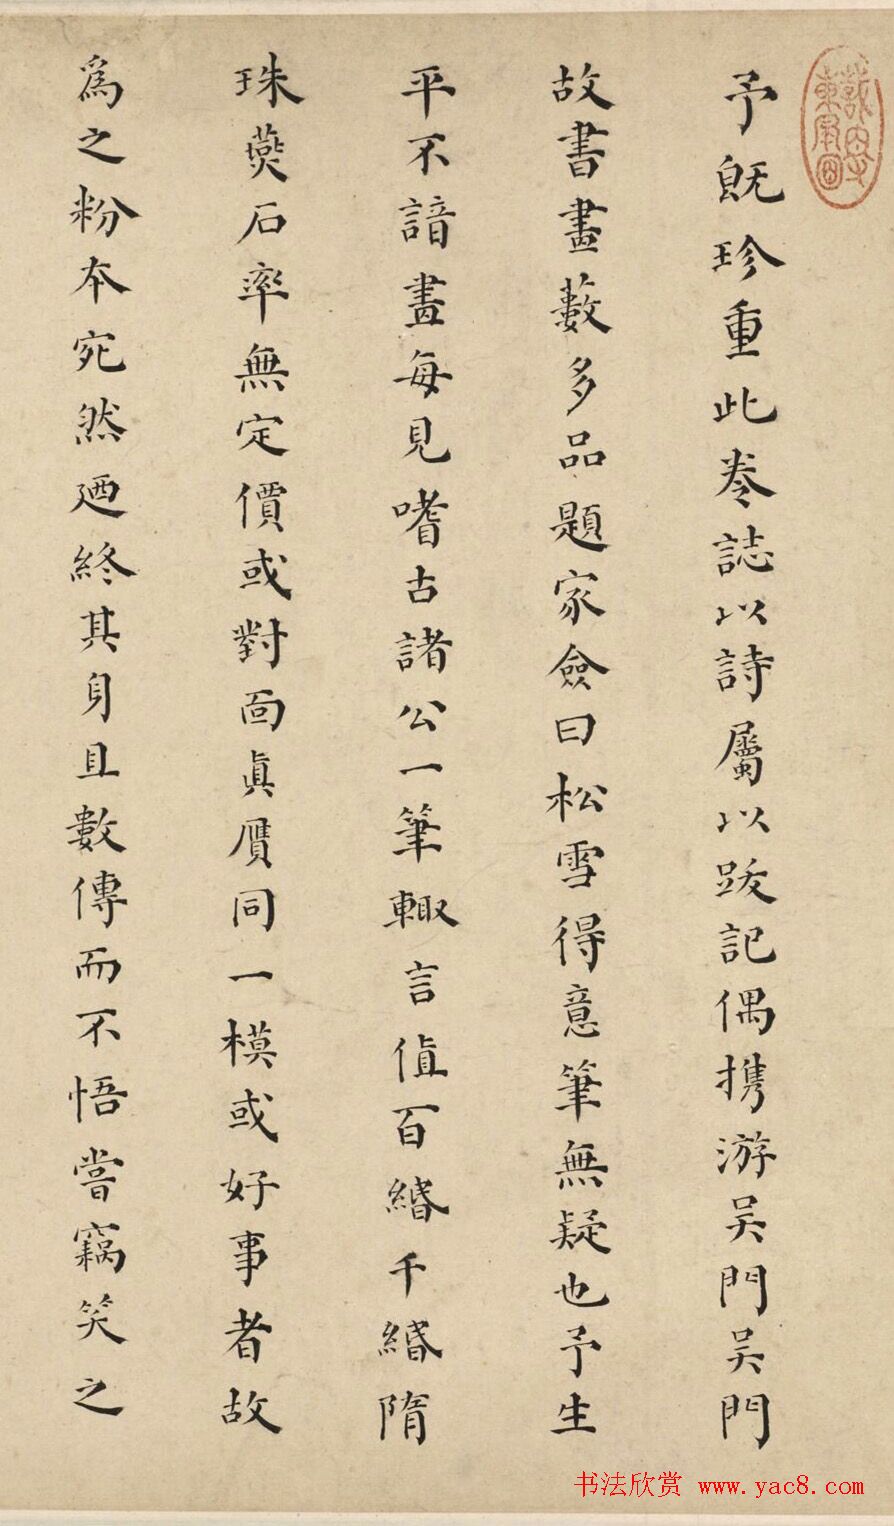 予既珍重此卷誌以詩屬以跋記偶携游吴門吴門
故書畫藪多品題家僉曰松雪得意筆無疑也予生
平不諳畫每見嗜古諸公一筆輙言值百緡千緡隋
珠燕石率無定價或對面真贋同一模或好事者故
為之粉本宛然廼終其身且數傳而不悟嘗竊笑之
书法欣赏 www.yac8.com